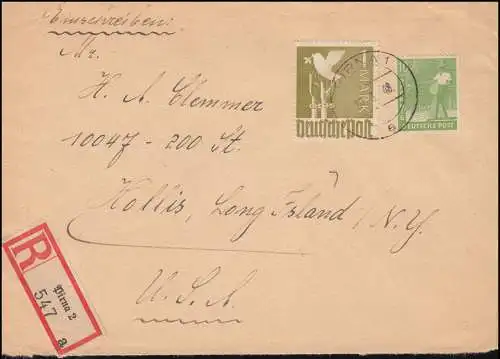 Einschreiben:
Mr.
H. A. Clemmer
10047 - 200 St.
Hollis, Long Island, N.Y.
U. S. A.
1 MARK
Deutsche Post
PIRNA 1
a
DEUTSCHE POST
R
Pirna 2
547
a